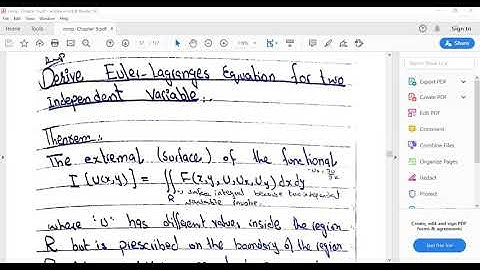 nmp. Chapter 9.pdf - Adobe Reader DC
File Edit View Window Help
Home Tools
nmp. Chapter 9.pdf ×
Sign In
Share
Derive Euler-Lagranges Equation for two
independent variable:.
Theorem:
The extremal (surface) of the functional
I [u(x,y)] = ∬ F(x, y, u, ux, uy) dx dy
R
surface integral because two independent
variable involve.
where 'u' has different values inside the region
R but is prescribed on the boundary of the region
Export PDF
Create PDF
Edit PDF
Comment
Combine Files
Organize Pages
Redact
Protect
Create, edit and sign PDF
forms & agreements
Start Free Trial